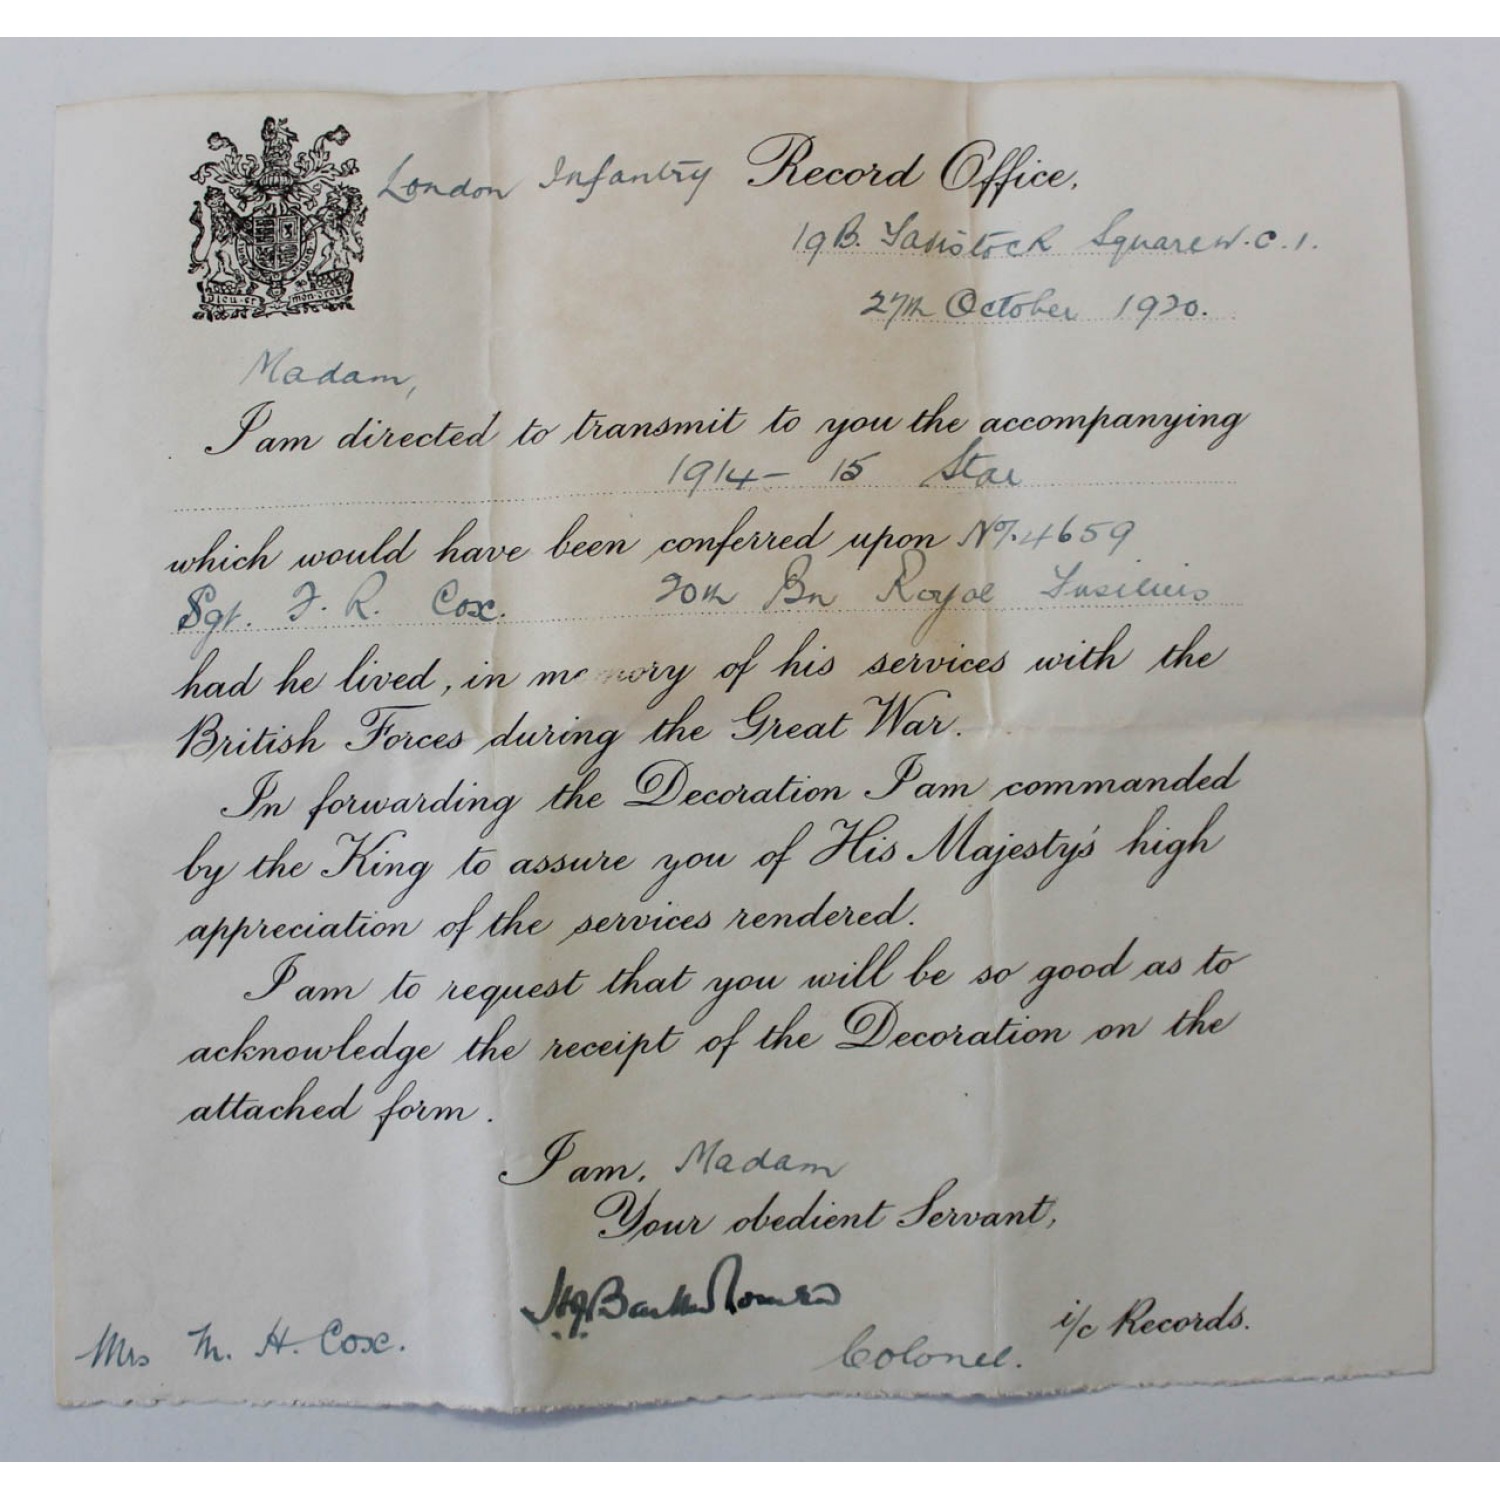 London Infantry Record Office,
19B. Tavistock Square W.C.1.
27th October 1920.
Dieu et mon droit
Madam,
I am directed to transmit to you the accompanying
1914-15 Star
which would have been conferred upon No. 4659
Sgt. F. R. Cox. 20th Bn Royal Fusiliers
had he lived, in memory of his services with the
British Forces during the Great War.
In forwarding the Decoration I am commanded
by the King to assure you of His Majesty's high
appreciation of the services rendered.
I am to request that you will be so good as to
acknowledge the receipt of the Decoration on the
attached form.
I am, Madam
Your obedient Servant,
i/c Records.
Colonel.
Mrs M. H. Cox.